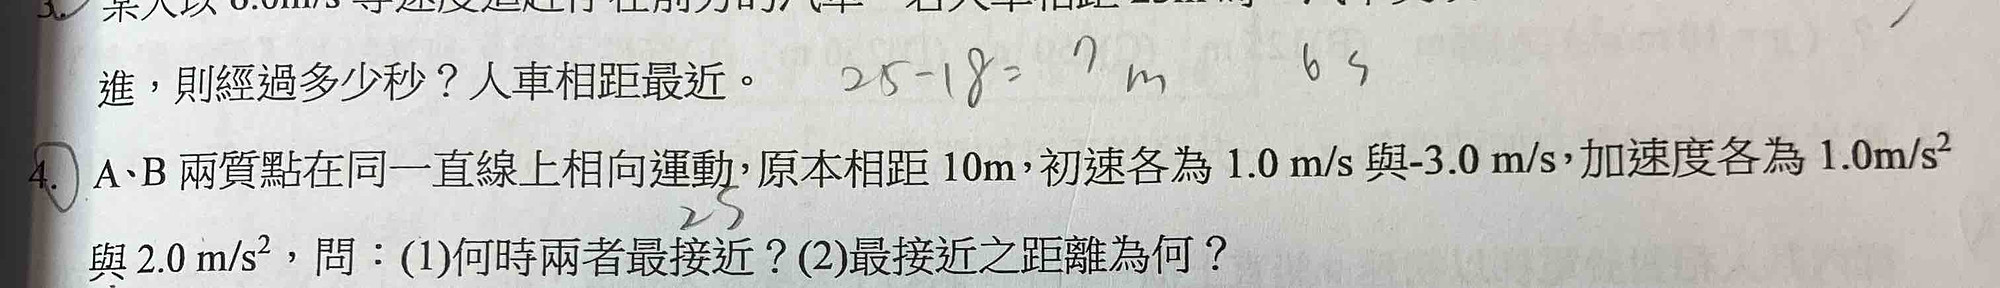 進，則經過多少秒？人車相距最近。 25-18=7m 6s
4. A、B 兩質點在同一直線上相向運動，原本相距 10m，初速各為 1.0 m/s 與-3.0 m/s，加速度各為 1.0m/s²
2s
與 2.0 m/s²，問：(1)何時兩者最接近？(2)最接近之距離為何？